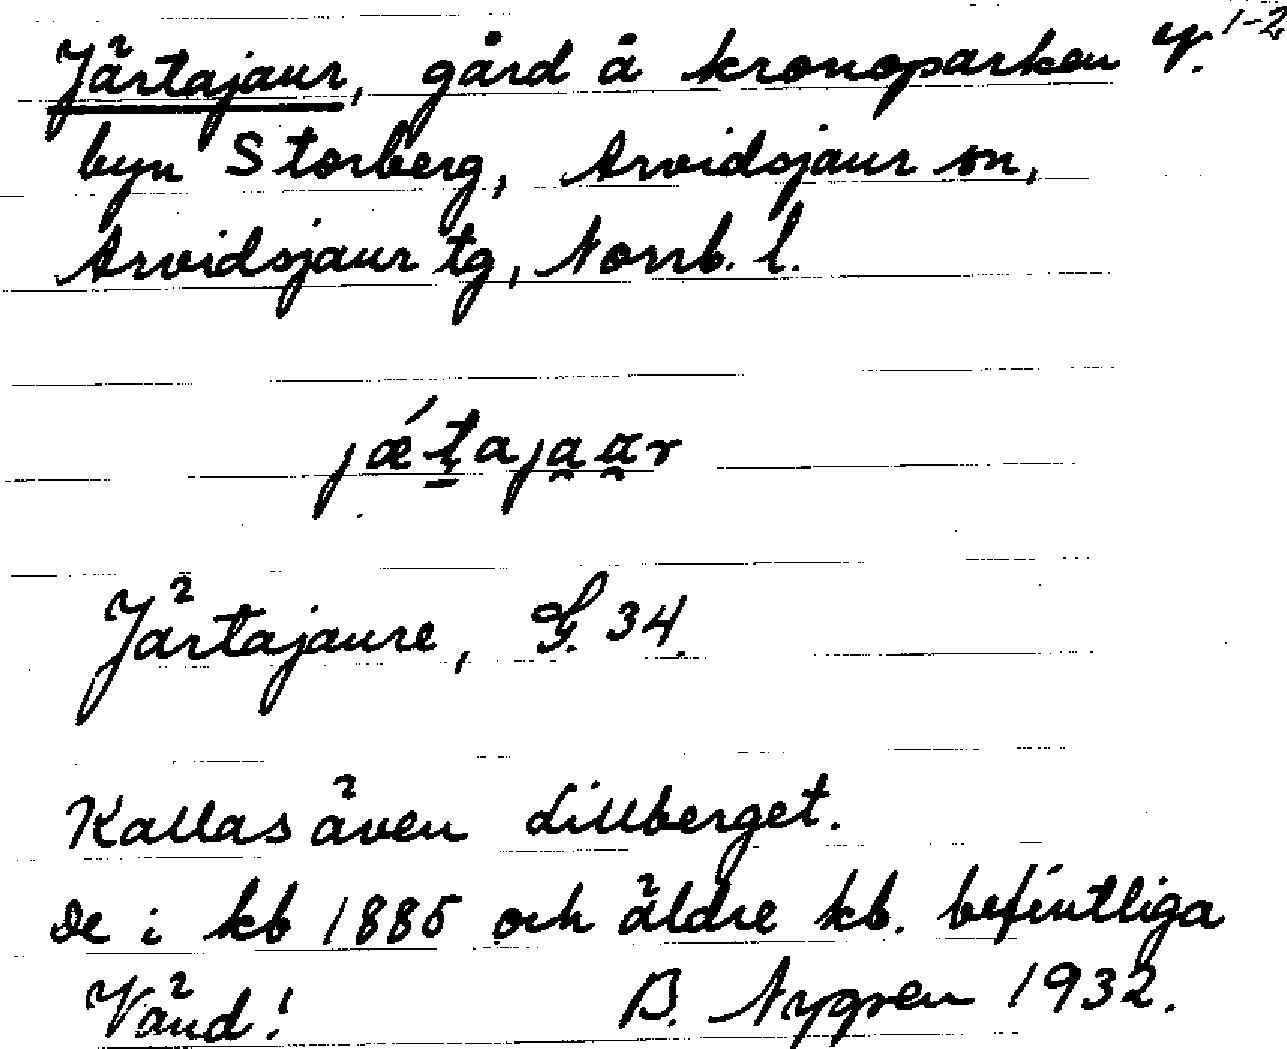 Järtajaur, gård å kronoparken y. 1-2
byn Storberg, Arvidsjaur sn,
Arvidsjaur tg, Norrb. l.
jǽt̠ajaar
Järtajaure, G. 34.
Kallas även Lillberget.
De i kb 1885 och äldre kb. befintliga
Vänd! B. Nygren 1932.